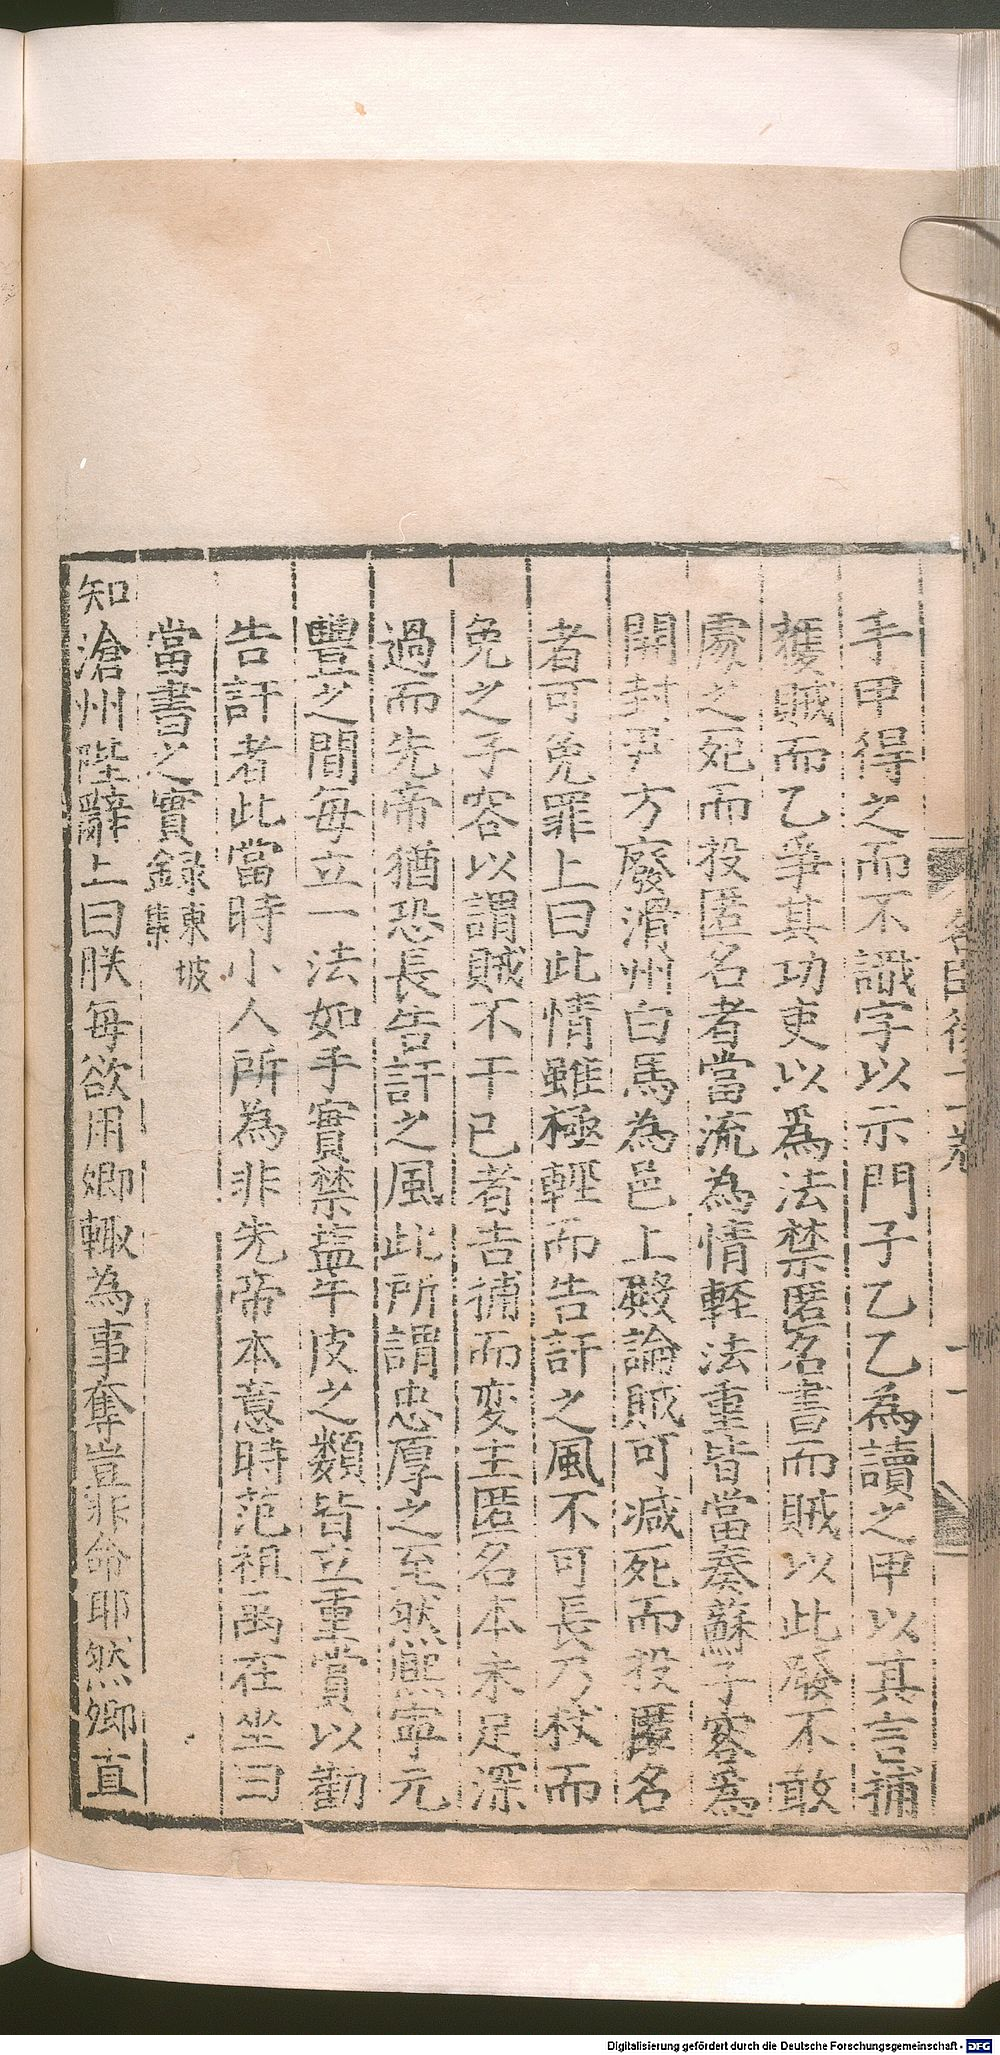 手甲得之而不識字以示門子乙乙為讀之甲以其言捕
獲賊而乙爭其功吏以為法禁匿名書而賊以此發不敢
處之死而投匿名者當流為情輕法重皆當奏蘇子容為
開封尹方廢滑州白馬為邑上殿論賊可减死而投匿名
者可免罪上曰此情雖極輕而告訐之風不可長乃杖而
免之子容以謂賊不干已者告捕而変主匿名本未足深
過而先帝猶恐長告訐之風此所謂忠厚之至然熈寧元
豐之間每立一法如手實禁盐牛皮之類皆立重賞以勸
告訐者此當時小人所為非先帝本意時范祖禹在坐曰
當書之實録東坡集
知滄州陛辭上曰朕每欲用卿輙為事奪豈非命耶然卿直
Digitalisierung gefördert durch die Deutsche Forschungsgemeinschaft - DFG